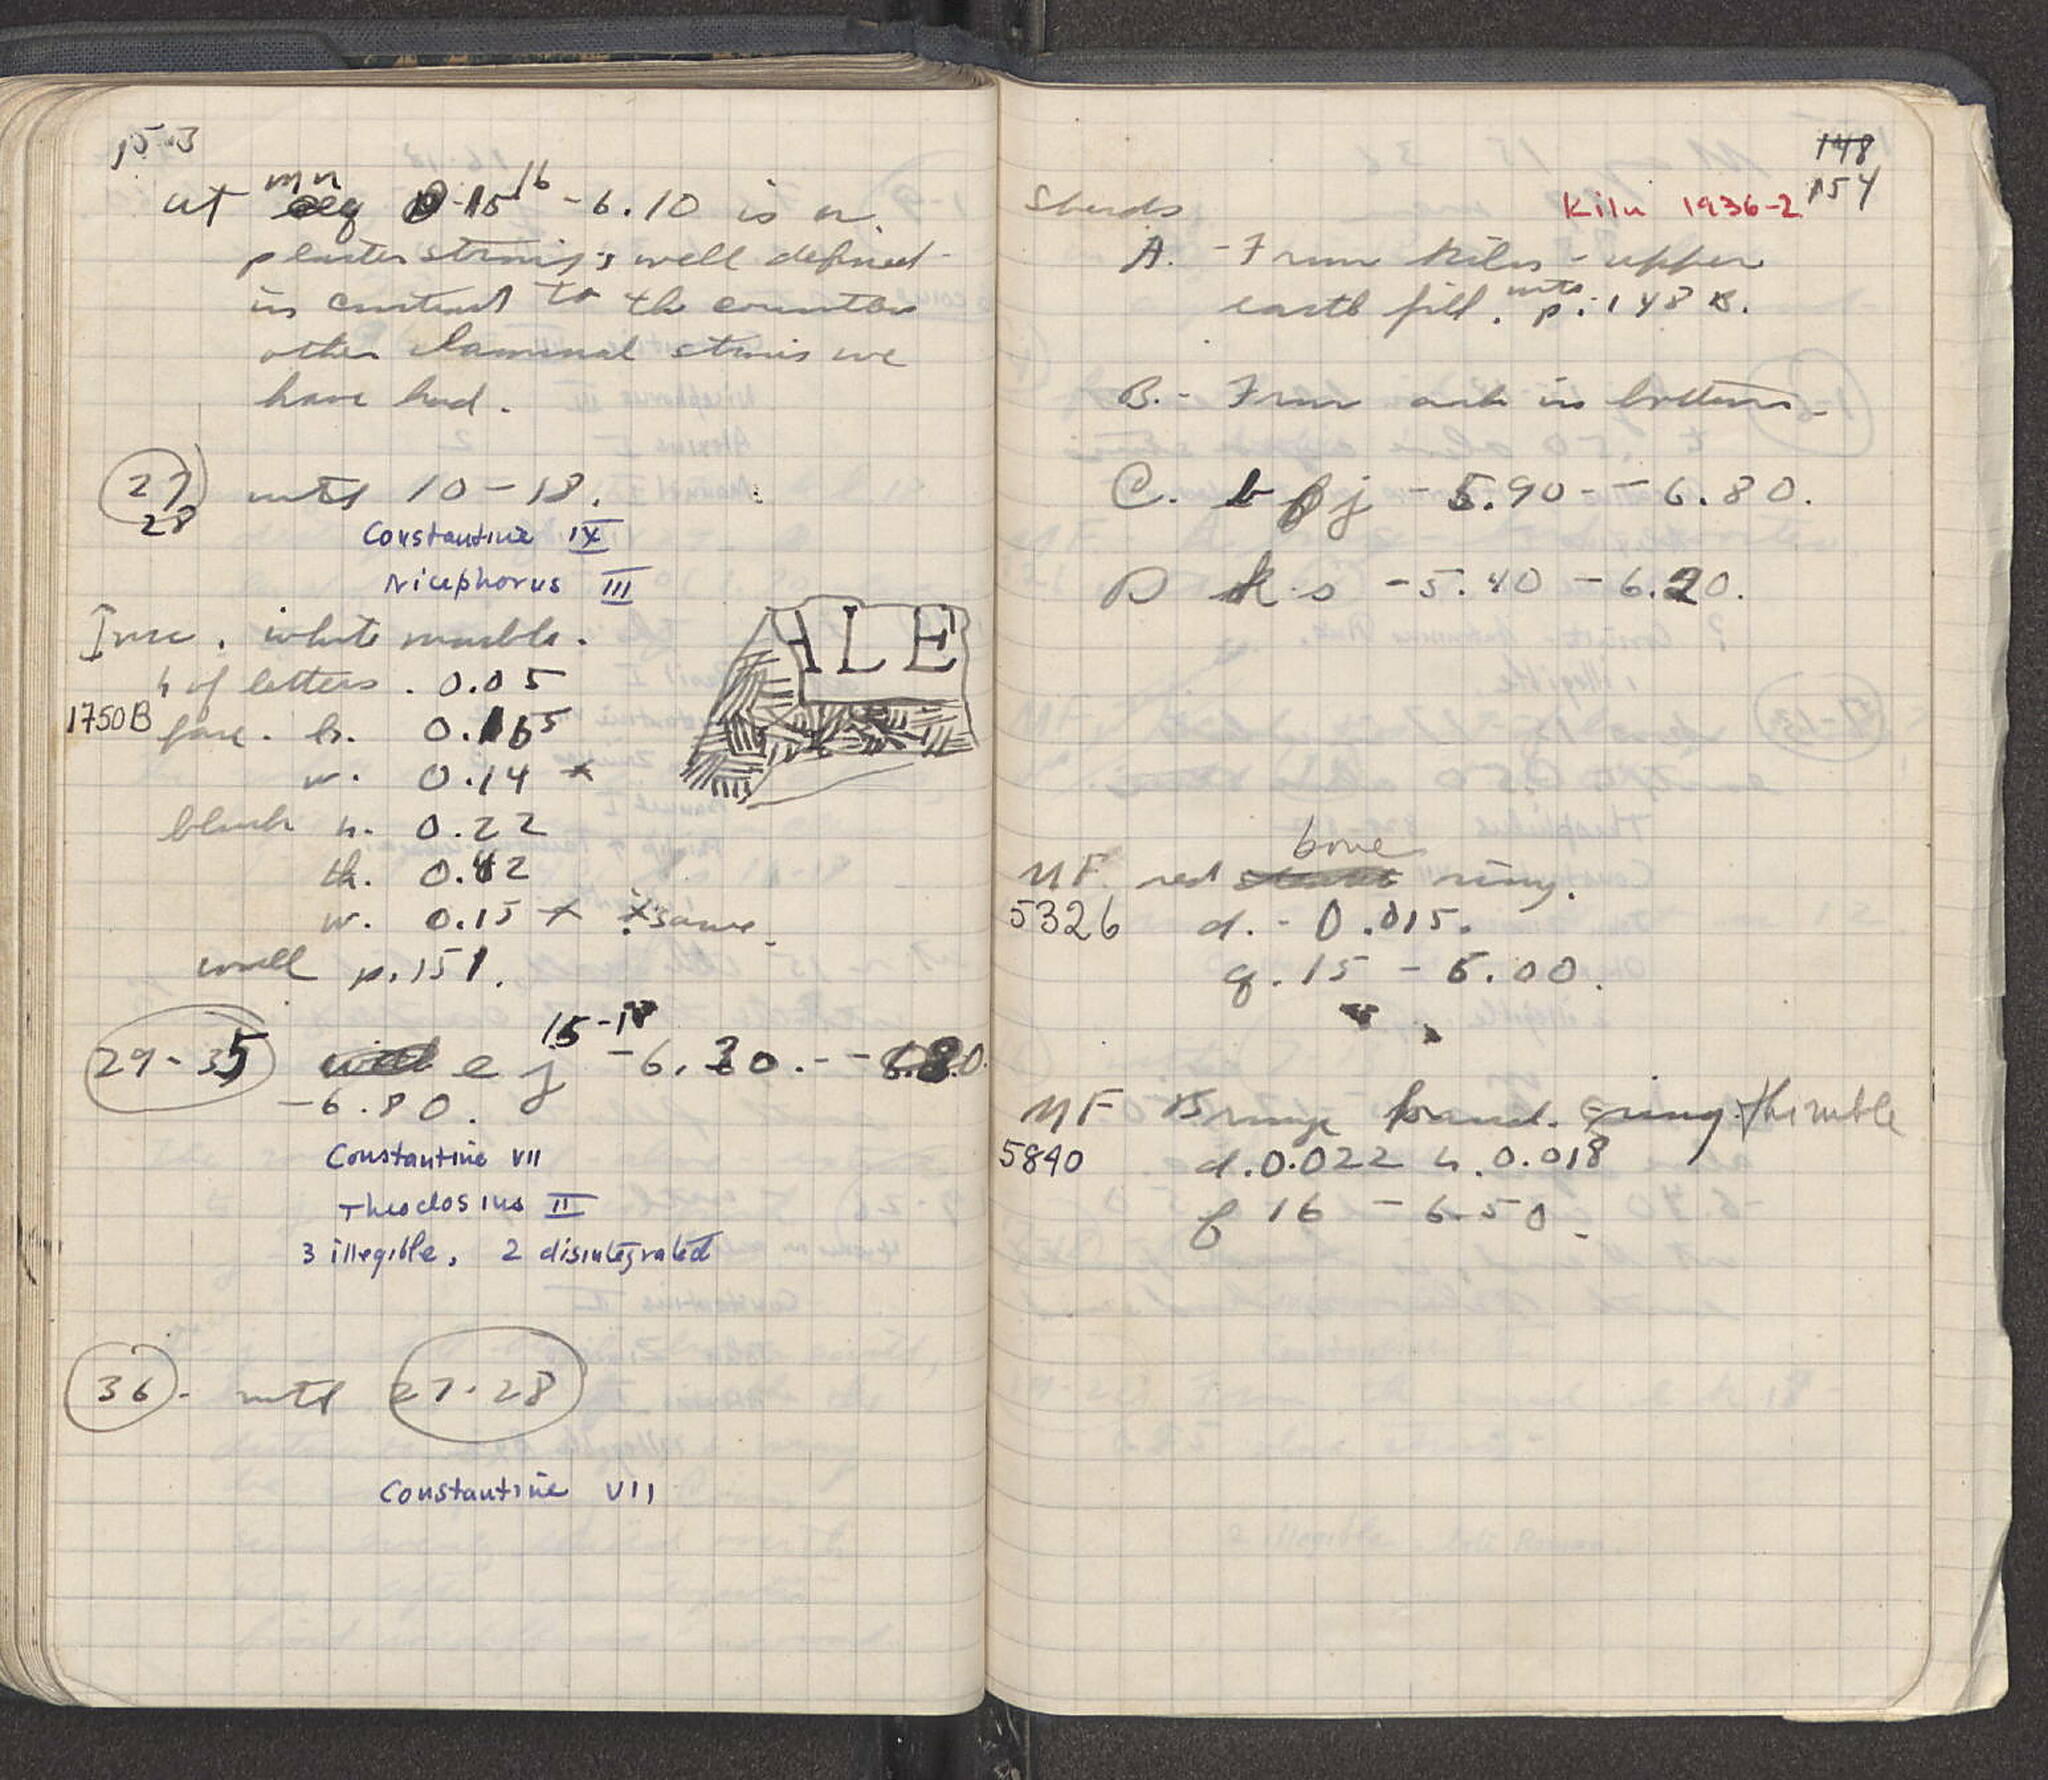 153
at m n 15 16 - 6.10 is a
plaster strosis well defined
in contrast to the countless
other laminal strosis we
have had.
27
28 with 10 - 18.
Constantine IX
Nicephorus III
Insc. white marble.
h of letters. 0.05
1750B face. h. 0.165
w. 0.14 x
block h. 0.22
th. 0.42
w. 0.15 x x same
wall p. 151.
ALE
29-35 e j 15-18 -6.30. -
-6.80.
Constantine VII
Theodosius II
3 illegible, 2 disintegrated
36 - with 27-28
Constantine VII
148
154
Sherds Kiln 1936-2
A. - From kiln - upper
earth fill. note p. 148
B. - From ash in bottom -
C. j - 5.90 - - 6.80.
D k-s -5.40 - 6.20.
MF red bone ring.
5326 d. - 0.015.
q. 15 - 6.00.
MF Bronze band. ring. thimble
5840 d. 0.022 h. 0.018
f 16 - 6.50.